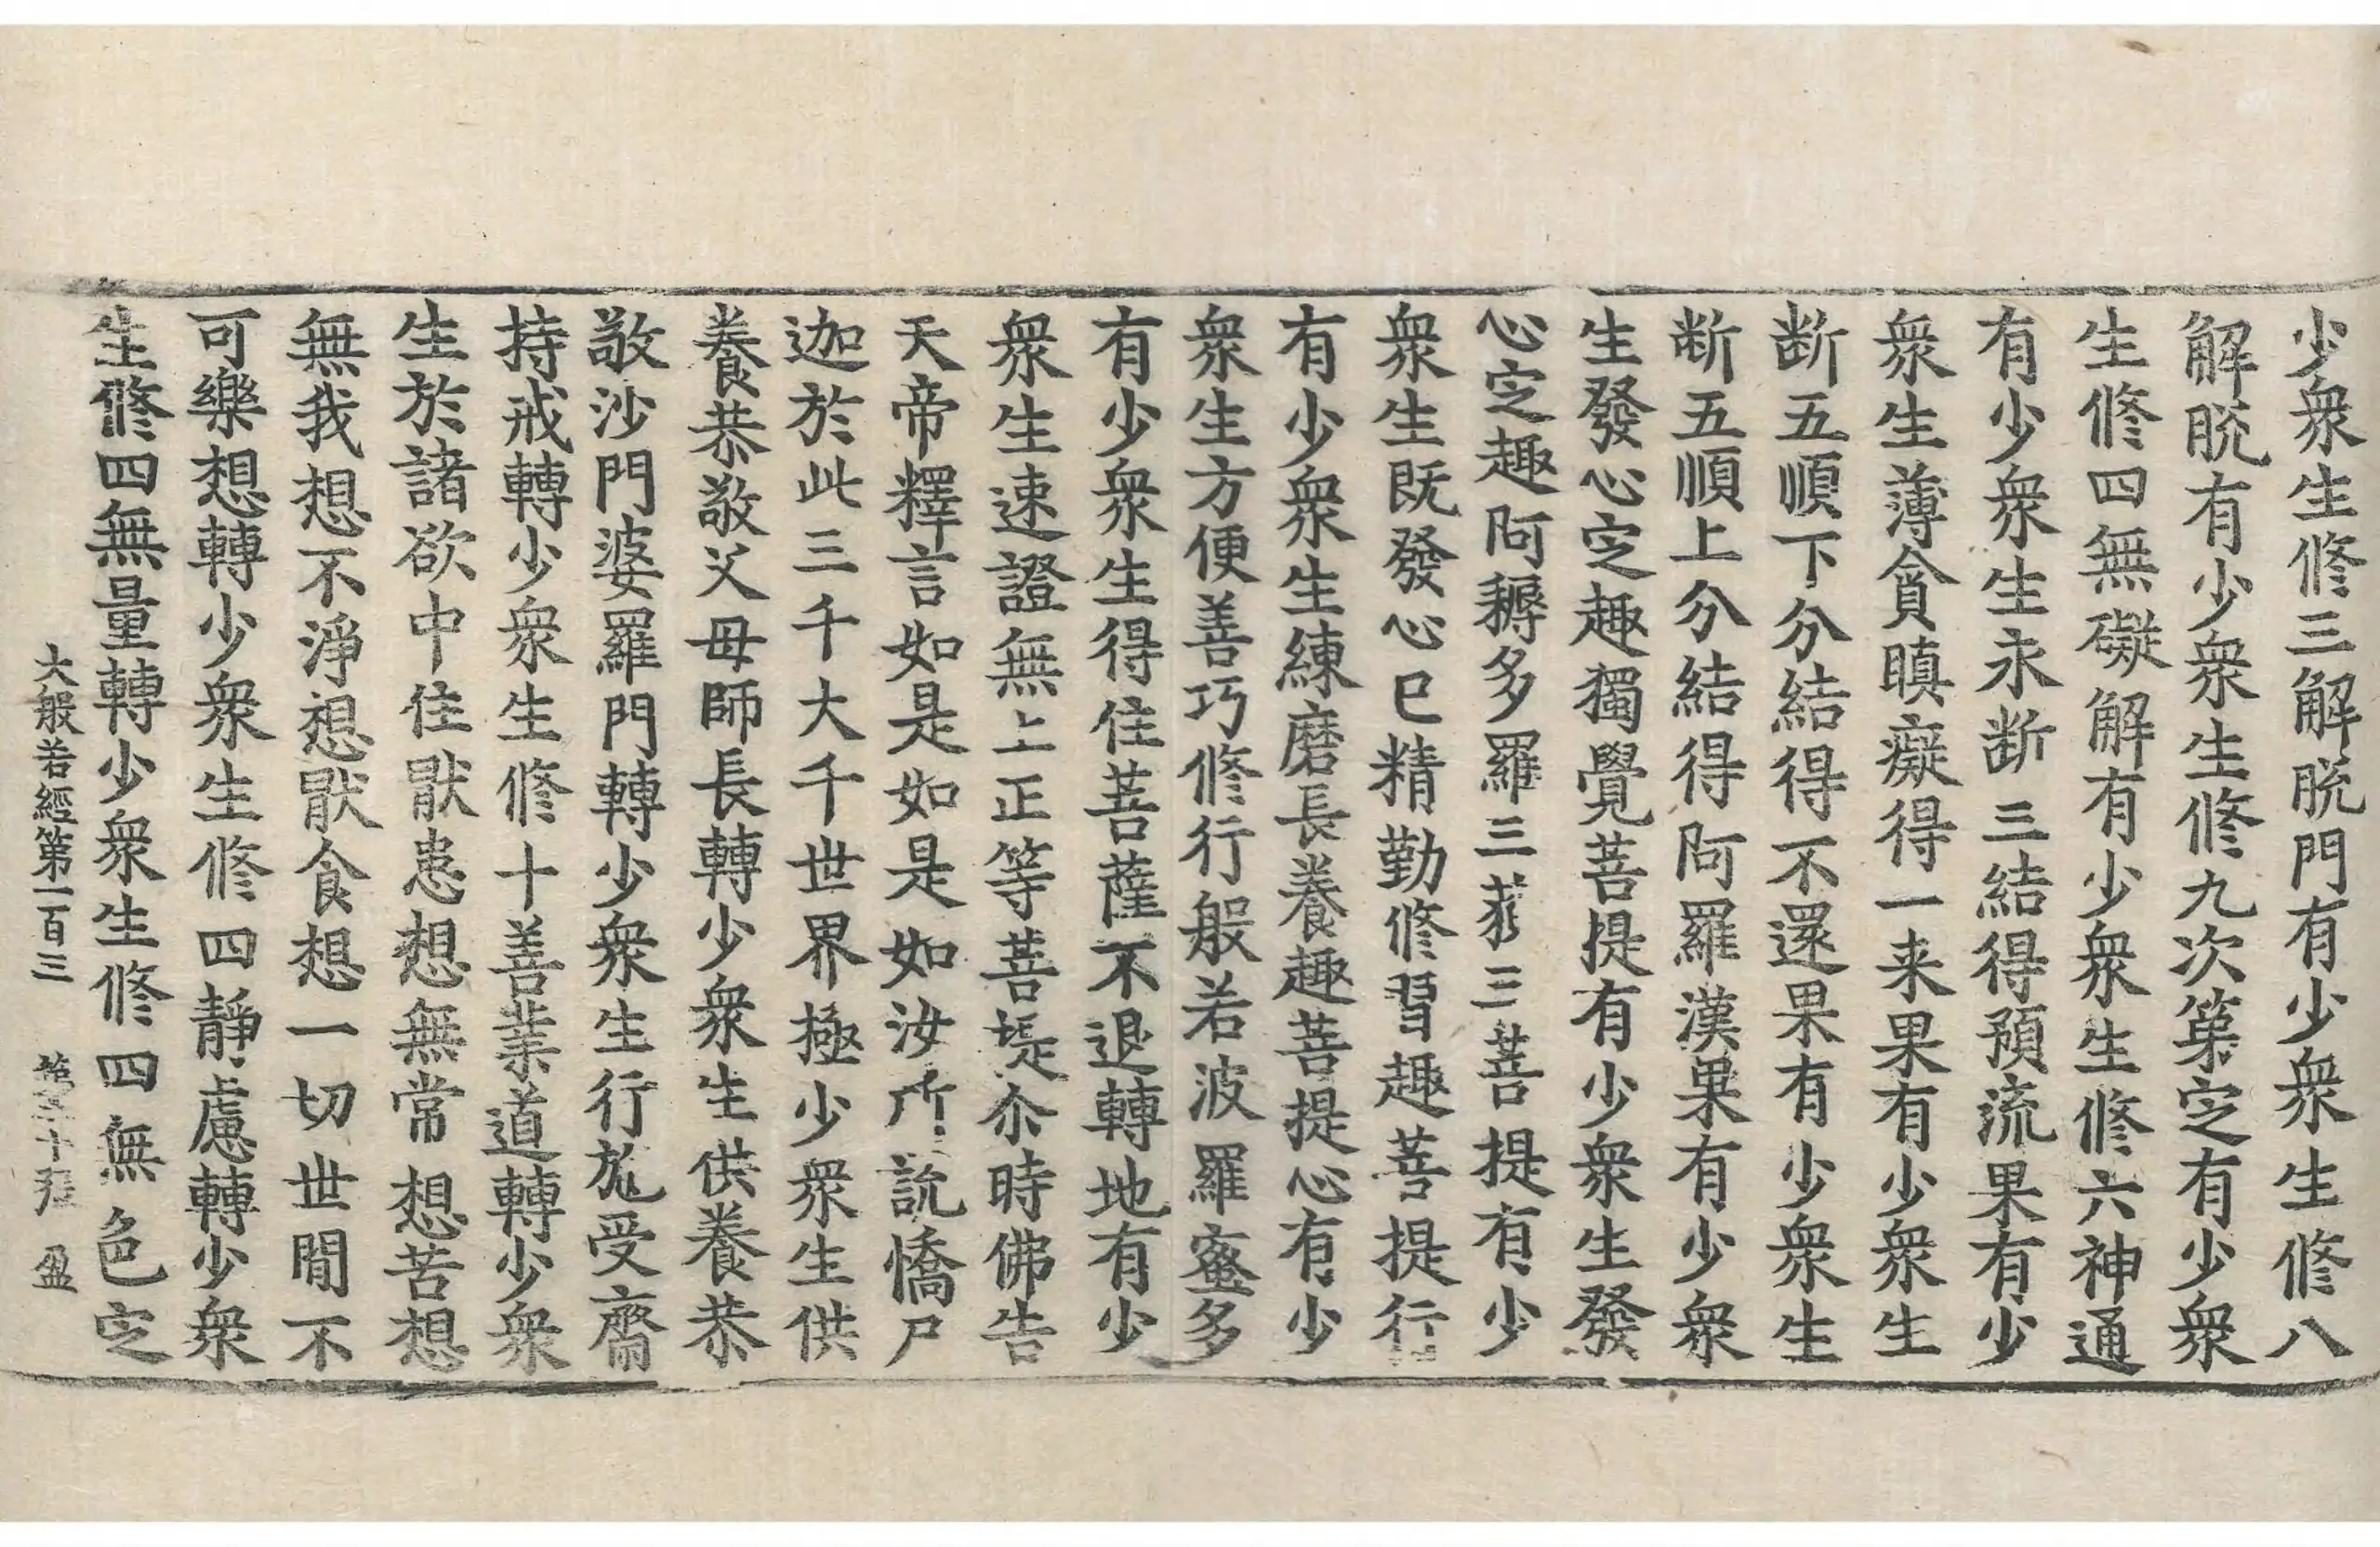 少衆生修三解脫門有少衆生修八
解脫有少衆生修九次第定有少衆
生修四無礙解有少衆生修六神通
有少衆生永断三結得預流果有少
衆生薄貪瞋癡得一来果有少衆生
断五順下分結得不還果有少衆生
断五順上分結得阿羅漢果有少衆
生發心定趣獨覺菩提有少衆生發
心定趣阿耨多羅三藐三菩提有少
衆生既發心已精勤修習趣菩提行
有少衆生練磨長養趣菩提心有少
衆生方便善巧修行般若波羅蜜多
有少衆生得住菩薩不退轉地有少
衆生速證無上正等菩提尒時佛告
天帝釋言如是如是如汝所說憍尸
迦於此三千大千世界極少衆生供
養恭敬父母師長轉少衆生供養恭
敬沙門婆羅門轉少衆生行施受齋
持戒轉少衆生修十善業道轉少衆
生於諸欲中住猒患想無常想苦想
無我想不淨想猒食想一切世閒不
可樂想轉少衆生修四靜慮轉少衆
生修四無量轉少衆生修四無色定
大般若經第一百三 第 十張 盈